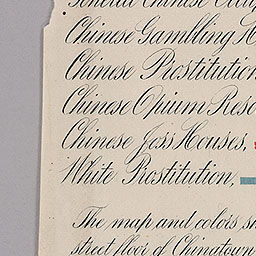 General Chinese Occup
Chinese Gambling H
Chinese Prostitution
Chinese Opium Reso
Chinese Joss Houses,
White Prostitution,
The map and colors sh
street floor of Chinatown